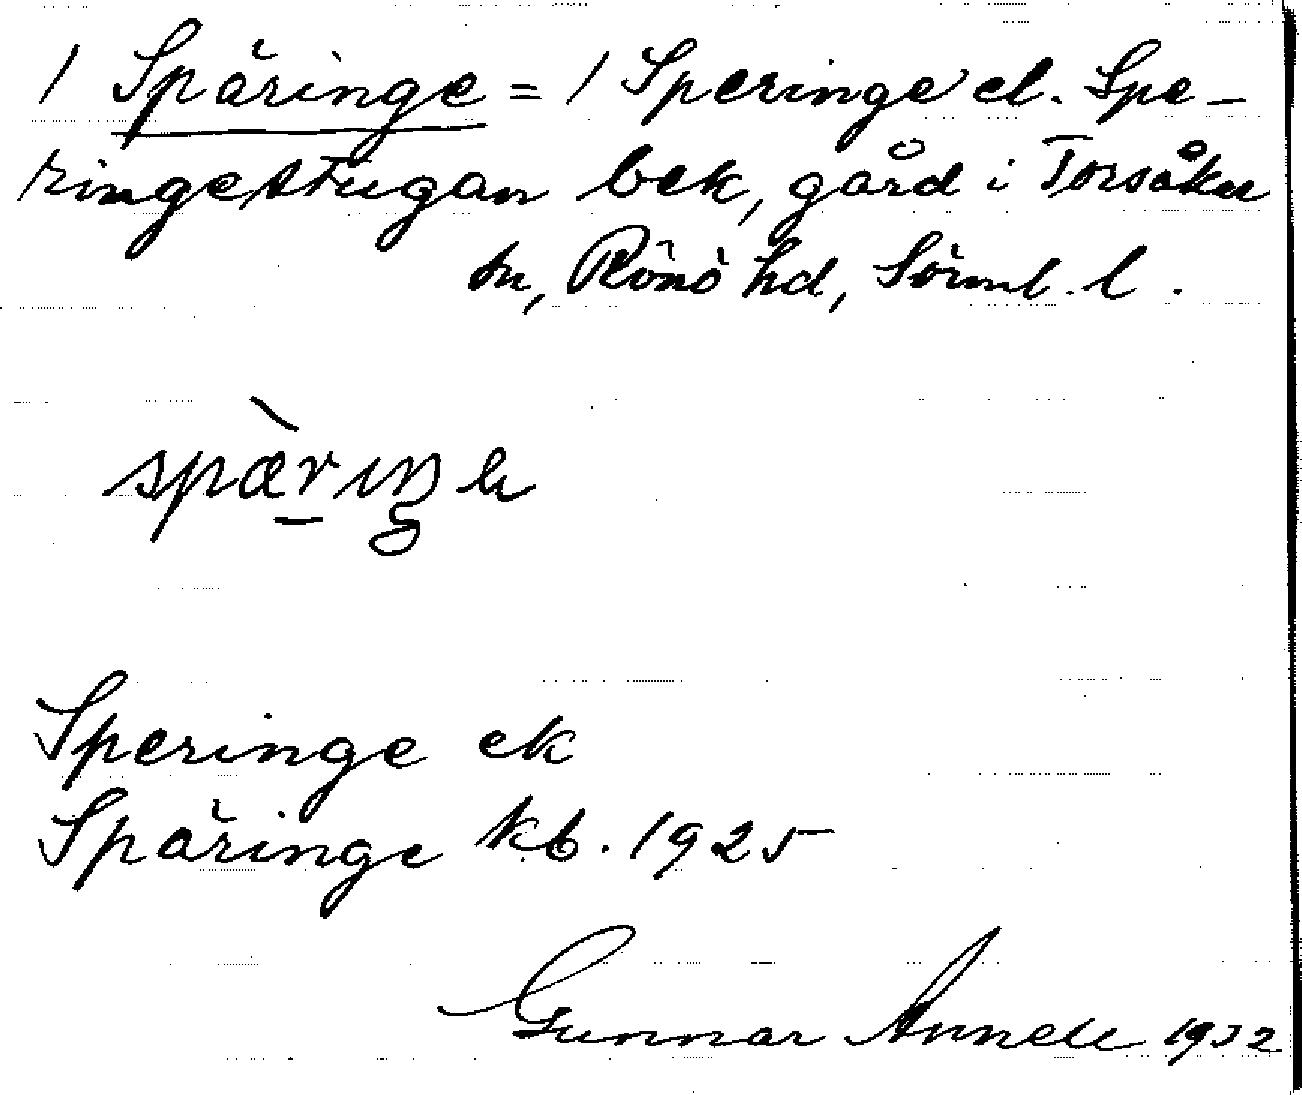 1 Späringe = 1 Speringe el. Spe-
ringestugan bek, gård i Torsåker
sn, Rönö hd, Sörml. l.
spæ̀riŋe
Speringe ek
Späringe kb. 1925
Gunnar Annell 1932